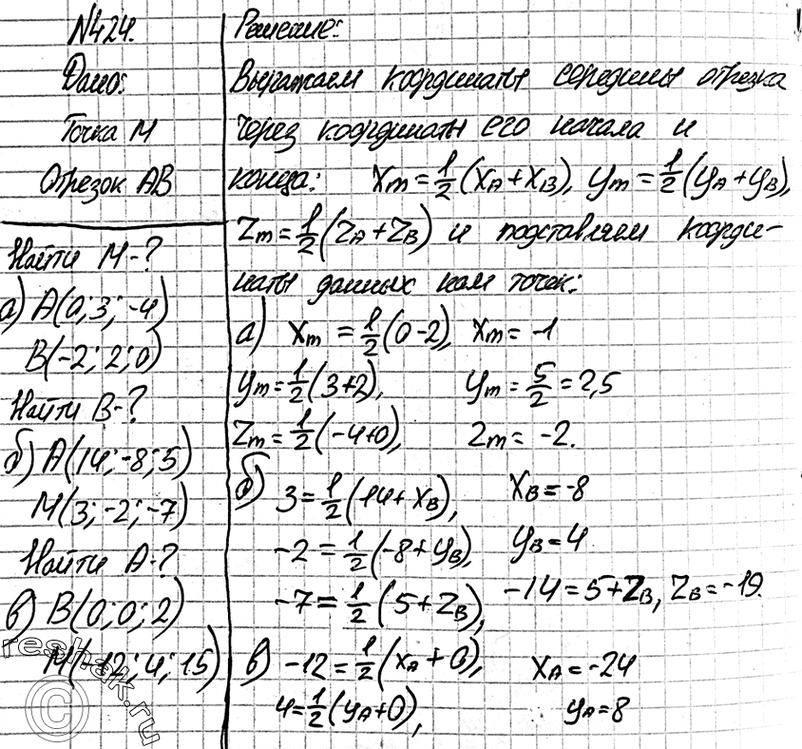 №424.
Дано:
Точка М
Отрезок АВ
Найти М-?
а) А(0; 3; -4)
В(-2; 2; 0)
Найти В-?
б) А(14; -8; 5)
М(3; -2; -7)
Найти А-?
в) В(0; 0; 2)
М(-12; 4; 15)
Решение:
Выражаем координаты середины отрезка
через координаты его начала и
конца: Xm = 1/2 (XA + XB), Ym = 1/2 (YA + YB),
Zm = 1/2 (ZA + ZB) и подставляем коорди-
наты данных нам точек:
а) Xm = 1/2 (0-2), Xm = -1
Ym = 1/2 (3+2), Ym = 5/2 = 2,5
Zm = 1/2 (-4+0), Zm = -2.
б) 3 = 1/2 (14 + XB), XB = -8
-2 = 1/2 (-8 + YB), YB = 4
-7 = 1/2 (5 + ZB), -14 = 5 + ZB, ZB = -19.
в) -12 = 1/2 (XA + 0), XA = -24
4 = 1/2 (YA + 0), YA = 8
reshak.ru